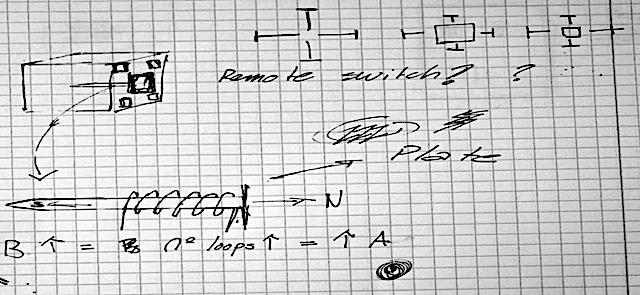 Remote switch? ?
Plate
N
B ↑ = nº loops ↑ = ↑ A